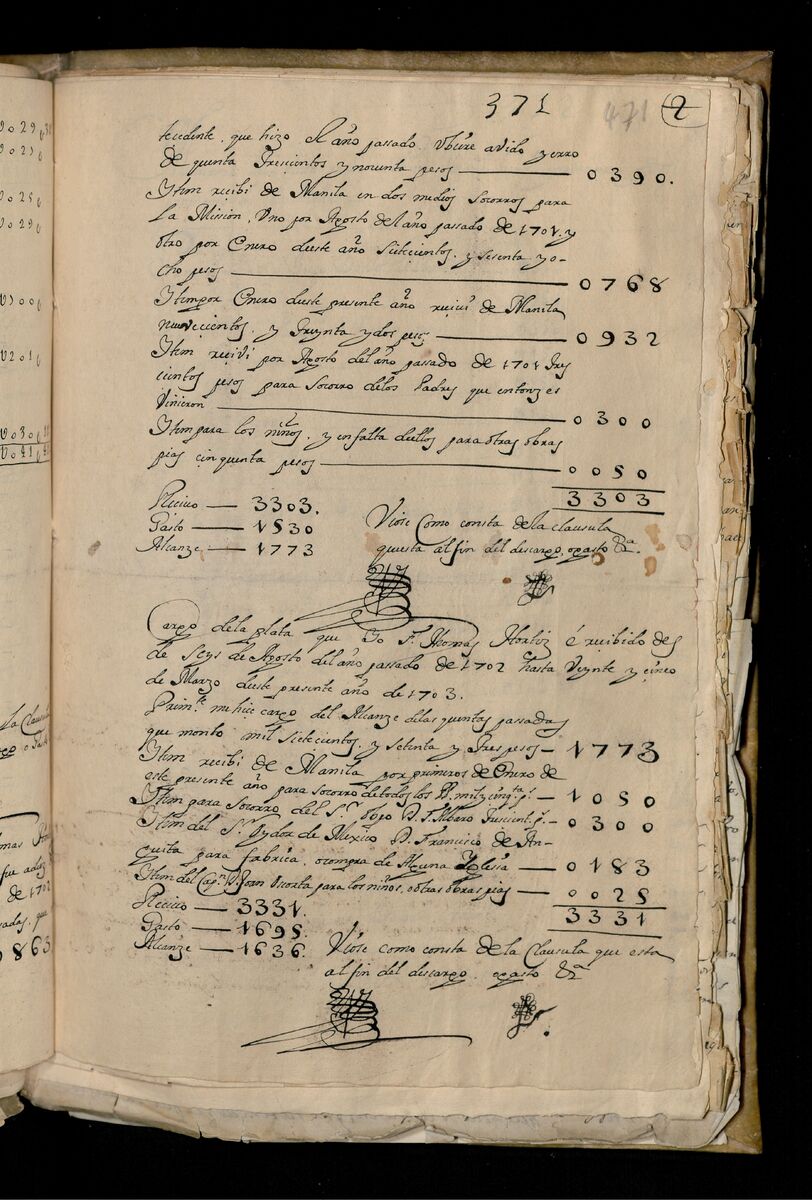 371 471 2
tecedente, que hizo el año passado Vbiere avido yerro
de quenta trescientos y noventa pesos — 0390.
Ytem recibi de Manila en dos medios socorros para
La Mission, Vno por Agosto del año passado de 1701. y
otro por Enero deeste año sietecientos, y sesenta y o-
cho pesos — 0768
Ytem por Enero deeste presente año recivi de Manila
nuevecientos, y treynta y dos pesos — 0932
Ytem recivi por Agosto del año passado de 1701 tres
cientos pesos para socorro delos Padres que entonzes
Vinieron — 0300
Ytem para los niños, y en falta deellos para otras obras
pias cinquenta pesos — 0050
3303
Recivo — 3303.
Gasto — 1530
Alcanze — 1773
Viose como consta de la clausula
questa al fin del descargo, o gasto &a.
Cargo dela plata que Yo F. Thomas Hortiz é recibido des
de Seys de Agosto del año passado de 1702 hasta Veynte y cinco
de Marzo deeste presente año de 1703.
Prim.te me hice cargo del Alcanze delas quentas passadas
que monto mil sietecientos, y setenta y tres pesos — 1773
Ytem recibi de Manila por primeros de Enero de
este presente año para socorro de todos los PP. mil y cinq.ta p.s — 1050
Ytem para Socorro del S.r obpo D. F. Albaro trescient.s p.s — 0300
Ytem del S.r Oydor de Mexico D. Francisco de An-
guita para fabrica, o compra de Alguna Yglesia — 0183
Ytem del Cap.n D. Joan para los niños, o otras obras pias — 0025
3331
Recivo — 3331.
Gasto — 1695.
Alcanze — 1636.
Viose como consta de la Clausula que esta
al fin del descargo, o gasto &a